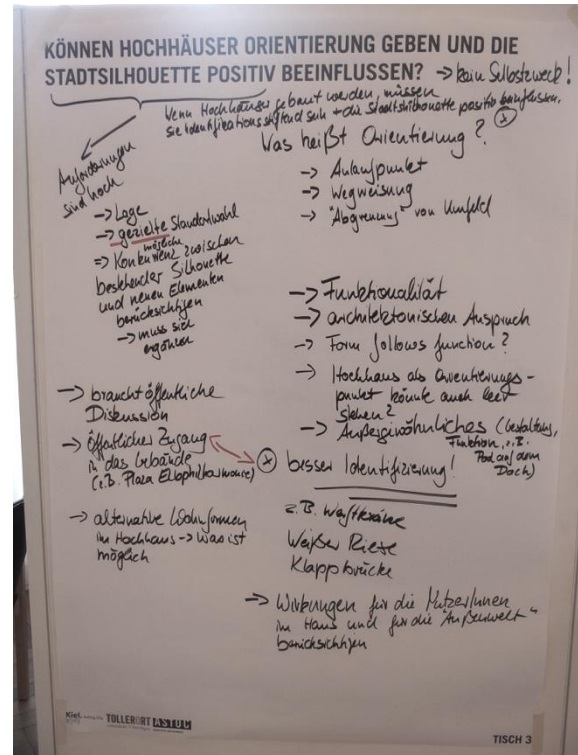 KÖNNEN HOCHHÄUSER ORIENTIERUNG GEBEN UND DIE
STADTSILHOUETTE POSITIV BEEINFLUSSEN? → kein Selbstzweck!
Wenn Hochhäuser gebaut werden, müssen
sie identifikationsstiftend sein + die Stadtsilhouette positiv beeinflussen.
Anforderungen
sind hoch
→ Lage
→ gezielte Standortwahl
mögliche
⇒ Konkurrenz zwischen
bestehender Silhouette
und neuen Elementen
berücksichtigen
→ muss sich
ergänzen
→ braucht öffentliche
Diskussion
→ öffentlicher Zugang
in das Gebäude
(z.B. Plaza Elbphilharmonie)
→ alternative Wohnformen
im Hochhaus → Was ist
möglich
Was heißt Orientierung?
→ Anlaufpunkt
→ Wegweisung
→ "Abgrenzung" von Umfeld
→ Funktionalität
→ architektonischen Anspruch
→ Form follows function?
→ Hochhaus als Orientierungs-
punkt könnte auch leer
stehen?
→ Außergewöhnliches (Gestaltung,
Funktion, z.B.
auf dem
Dach)
besser Identifizierung!
z.B. Werftkräne
Weißer Riese
Klappbrücke
→ Wirkungen für die NutzerInnen
im Haus und für die "Außenwelt"
berücksichtigen
Kiel. TOLLERORT ASTOC
TISCH 3